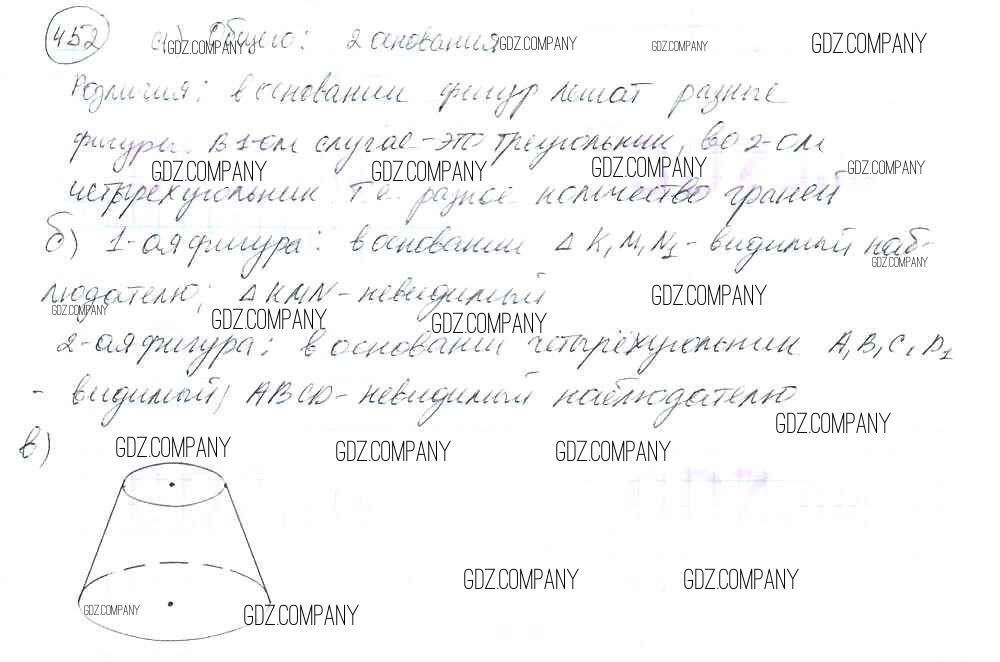 452 а) Общего: 2 основания
Различия: в основании фигур лежат разные
фигуры. В 1-ом случае - это треугольник, во 2-ом
четырёхугольник т.е. разное количество граней
б) 1-ая фигура: в основании Δ K₁M₁N₁ - видимый наб-
людателю; Δ KMN - невидимый
2-ая фигура: в основании четырёхугольник A₁B₁C₁D₁
- видимый; ABCD - невидимый наблюдателю
в)
GDZ.COMPANY GDZ.COMPANY GDZ.COMPANY GDZ.COMPANY
GDZ.COMPANY GDZ.COMPANY GDZ.COMPANY GDZ.COMPANY
GDZ.COMPANY
GDZ.COMPANY GDZ.COMPANY GDZ.COMPANY GDZ.COMPANY
GDZ.COMPANY
GDZ.COMPANY GDZ.COMPANY GDZ.COMPANY
GDZ.COMPANY GDZ.COMPANY
GDZ.COMPANY GDZ.COMPANY